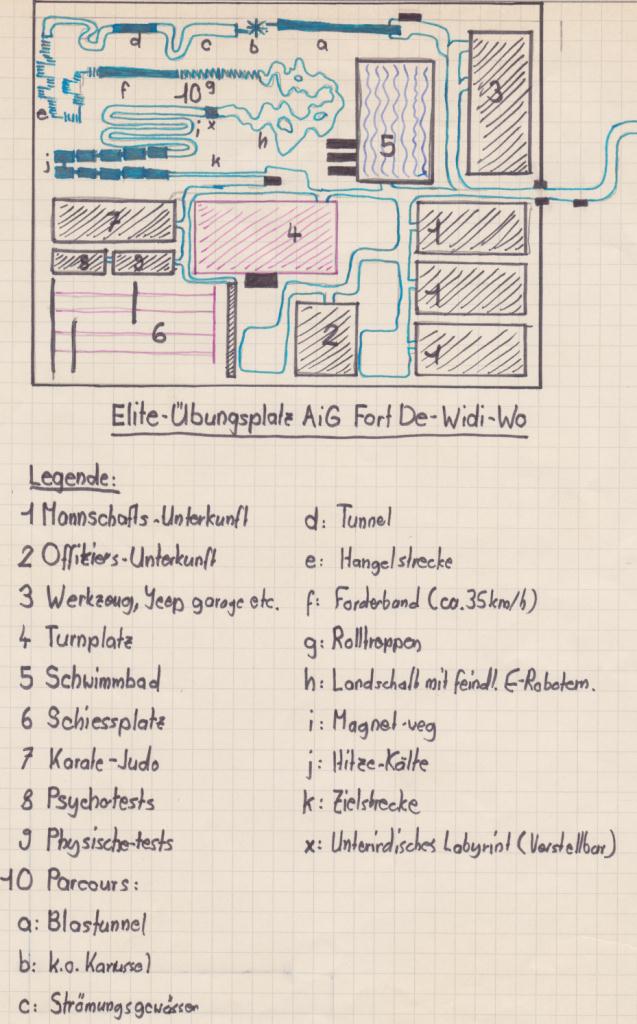 d
c
b
a
3
e
f
10
g
x
i
h
5
j
k
7
4
1
8
9
1
6
2
1
Elite-Übungsplatz AiG Fort De-Widi-Wo
Legende:
1 Mannschafts-Unterkunft
2 Offiziers-Unterkunft
3 Werkzeug, Jeep garage etc.
4 Turnplatz
5 Schwimmbad
6 Schiessplatz
7 Karate-Judo
8 Psychotests
9 Physische-tests
10 Parcours:
a: Blastunnel
b: k.o. Karussel
c: Strömungsgewässer
d: Tunnel
e: Hangelstrecke
f: Förderband (ca. 35km/h)
g: Rolltreppen
h: Landschaft mit feindl. E-Robotern.
i: Magnet-weg
j: Hitze-Kälte
k: Zielstrecke
x: Unterirdisches Labyrint (Verstellbar)